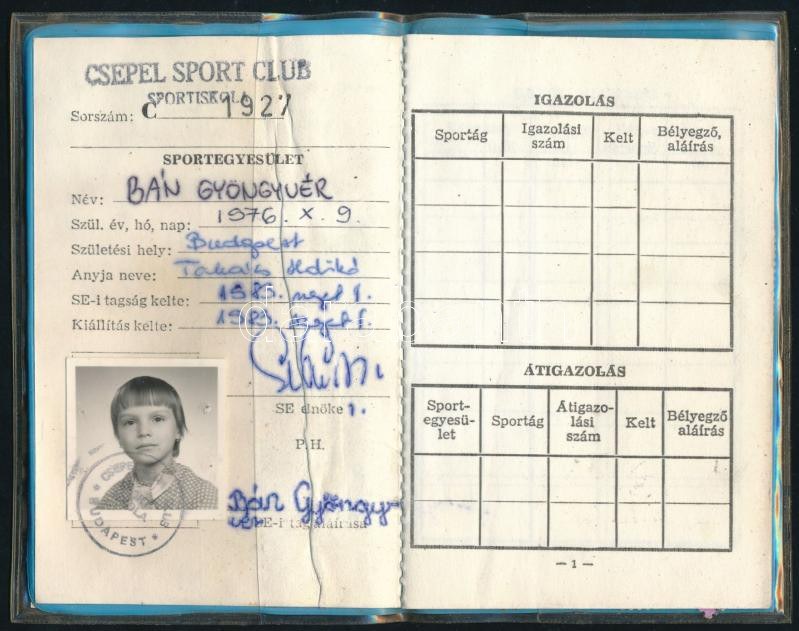 CSEPEL SPORT CLUB
SPORTISKOLA
Sorszám: C 1927
SPORTEGYESÜLET
Név: BÁN GYÖNGYVÉR
Szül. év, hó, nap: 1976. X. 9.
Születési hely: Budapest
Anyja neve: Takács Ildikó
SE-i tagság kelte: 1985. szept 1.
Kiállítás kelte: 1985. szept 1.
SE elnöke
P. H.
Bán Gyöngy
vér
SE-i tag aláírása
CSEPEL
BUDAPEST
IGAZOLÁS
Sportág Igazolási szám Kelt Bélyegző, aláírás
ÁTIGAZOLÁS
Sport-egyesü-let Sportág Átigazo-lási szám Kelt Bélyegző aláírás
— 1 —